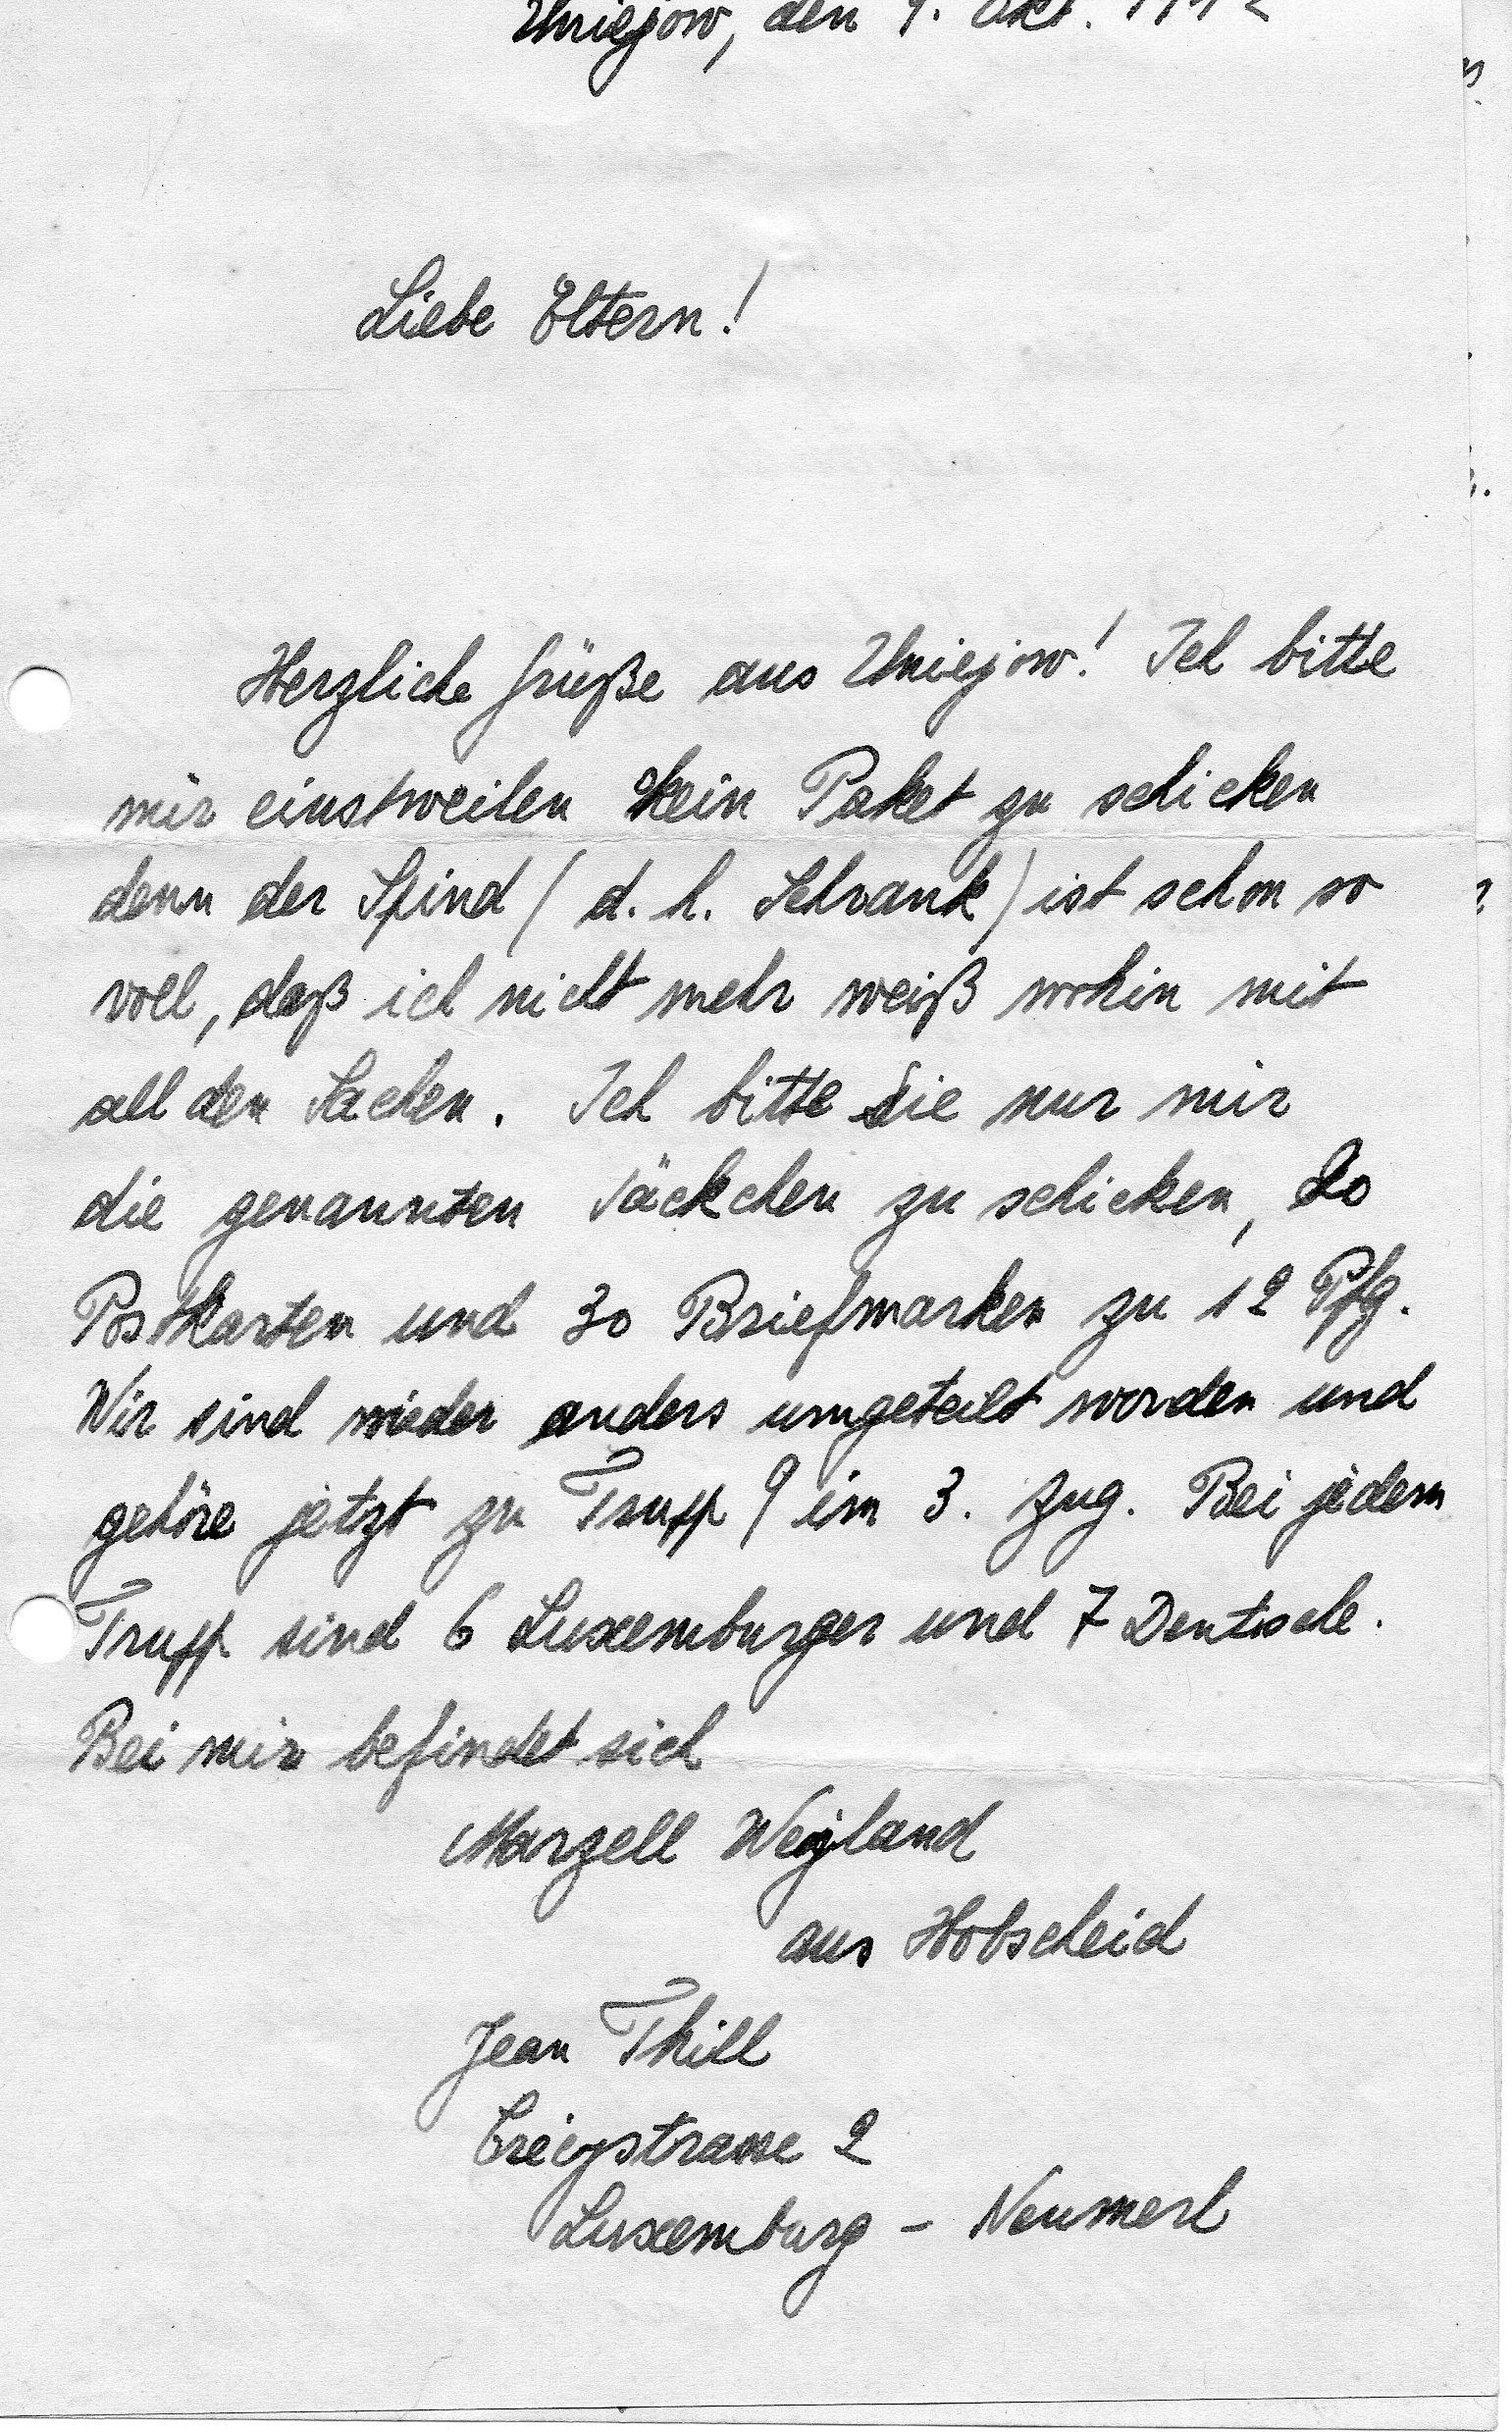 Uniejow, den 9. Okt. 1942
Liebe Eltern!
Herzliche Grüße aus Uniejow! Ich bitte
mir einstweilen kein Paket zu schicken
denn der Spind ( d. h. Schrank) ist schon so
voll, daß ich nicht mehr weiß wohin mit
all den Sachen. Ich bitte Sie nur mir
die genannten Säckchen zu schicken, 20
Postkarten und 30 Briefmarken zu 12 Pfg.
Wir sind wieder anders umgeteilt worden und
gehöre jetzt zu Trupp 9 im 3. Zug. Bei jedem
Trupp sind 6 Luxemburger und 7 Deutsche.
Bei mir befindet sich
Marzell Weyland
aus Hobscheid
Jean Thill
2
Luxemburg - Neumerl